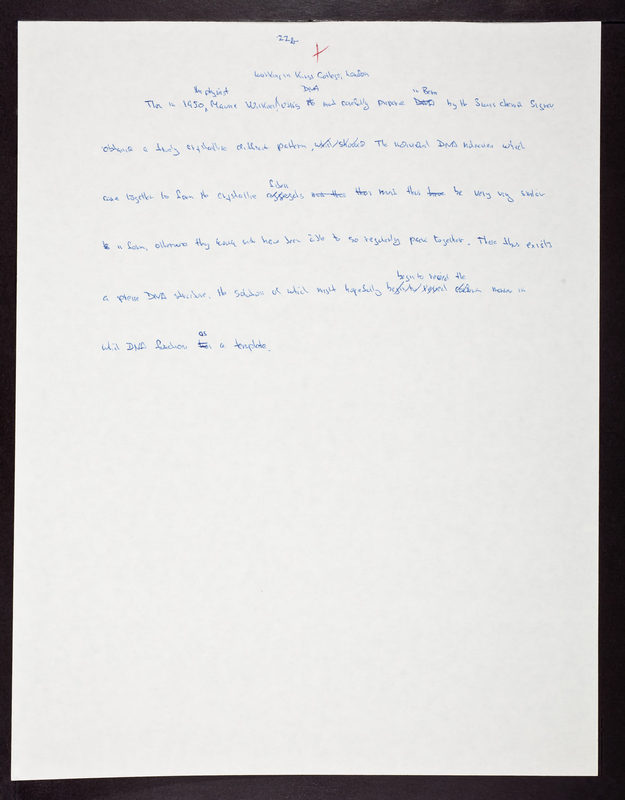 22b
Working in Kings College, London
the physicist DNA in Bern
Then in 1950, Maurice Wilkins, using and carefully prepared by the Swiss chemist Signer
obtained a finely crystalline diffraction pattern, The individual DNA molecules which
fibers
came together to form the crystalline must thus be very very similar
in form, otherwise they would not have been able to so regularly pack together. There thus exists
begin to reveal the
a precise DNA structure, the solution of which might hopefully manner in
as
which DNA functions a template.